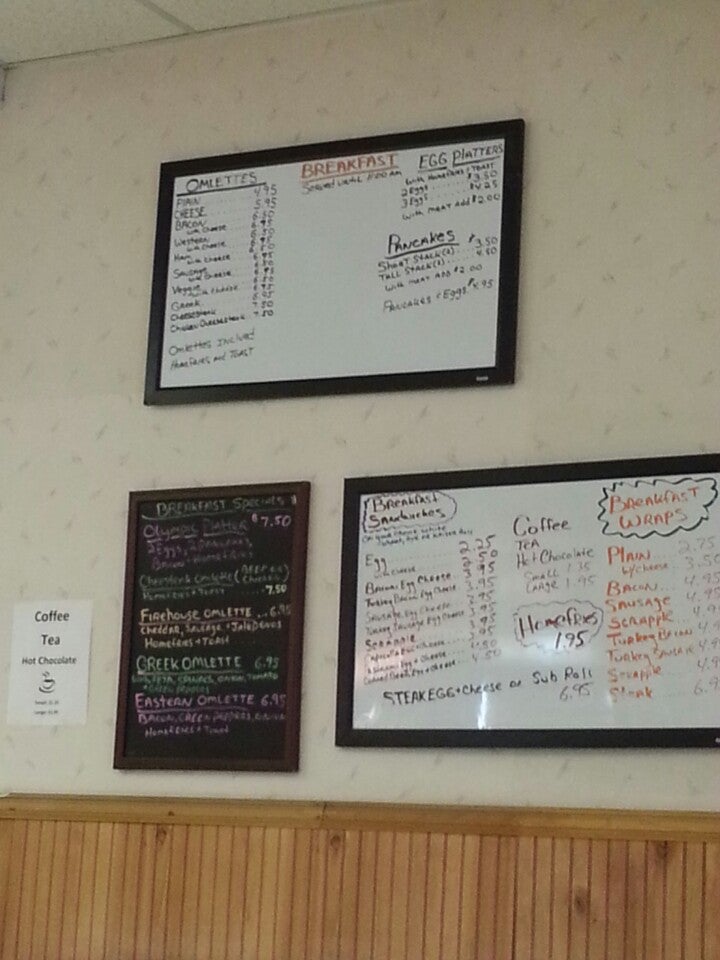 OMLETTES
PLAIN 4.95
CHEESE 5.95
BACON 6.50
with Cheese 6.95
Western 6.50
with Cheese 6.95
Ham 6.50
with Cheese 6.95
Sausage 6.50
with Cheese 6.95
Veggie 6.50
with Cheese 6.95
Greek 6.95
Cheesesteak 7.50
Chicken Cheesesteak 7.50
Omlettes Included
Homefries and Toast
BREAKFAST
Served until 11:00 AM
EGG PLATTERS
with Homefries + TOAST
2 Eggs $3.50
3 Eggs $4.25
with MEAT Add $2.00
PANCAKES
SHORT STACK(2) $3.50
TALL STACK(3) 4.50
with MEAT ADD $2.00
PANCAKES + Eggs $4.95
BREAKFAST Specials
Olympic Platter $7.50
3 Eggs, 2 Pancakes,
Bacon + Homefries
Cheesesteak Omlette (BEEF or Chicken)
Homefries + Toast 7.50
FIREHOUSE OMLETTE 6.95
Cheddar, Sausage + Jalepenos
Homefries + Toast
GREEK OMLETTE 6.95
with FETA, onion, Tomato
+ Green Peppers
EASTERN OMLETTE 6.95
BACON, GREEN PEPPERS, ONION
Homefries + Toast
Coffee
Tea
Hot Chocolate
Breakfast
Sandwiches
Egg 2.25
with cheese
Bacon Egg Cheese 3.95
Turkey Bacon Egg Cheese 3.95
Sausage Egg Cheese
Turkey Sausage Egg Cheese
Scrapple
Egg + Cheese
Egg + Cheese 4.50
STEAK EGG + Cheese on Sub Roll
6.95
Coffee
TEA
Hot Chocolate
Small 1.35
Large 1.95
Homefries
1.95
BREAKFAST
WRAPS
PLAIN 2.75
w/cheese 3.50
BACON 4.95
SAUSAGE 4.95
Scrapple 4.95
Turkey Bacon
Turkey Sausage
Scrapple
Steak 6.9